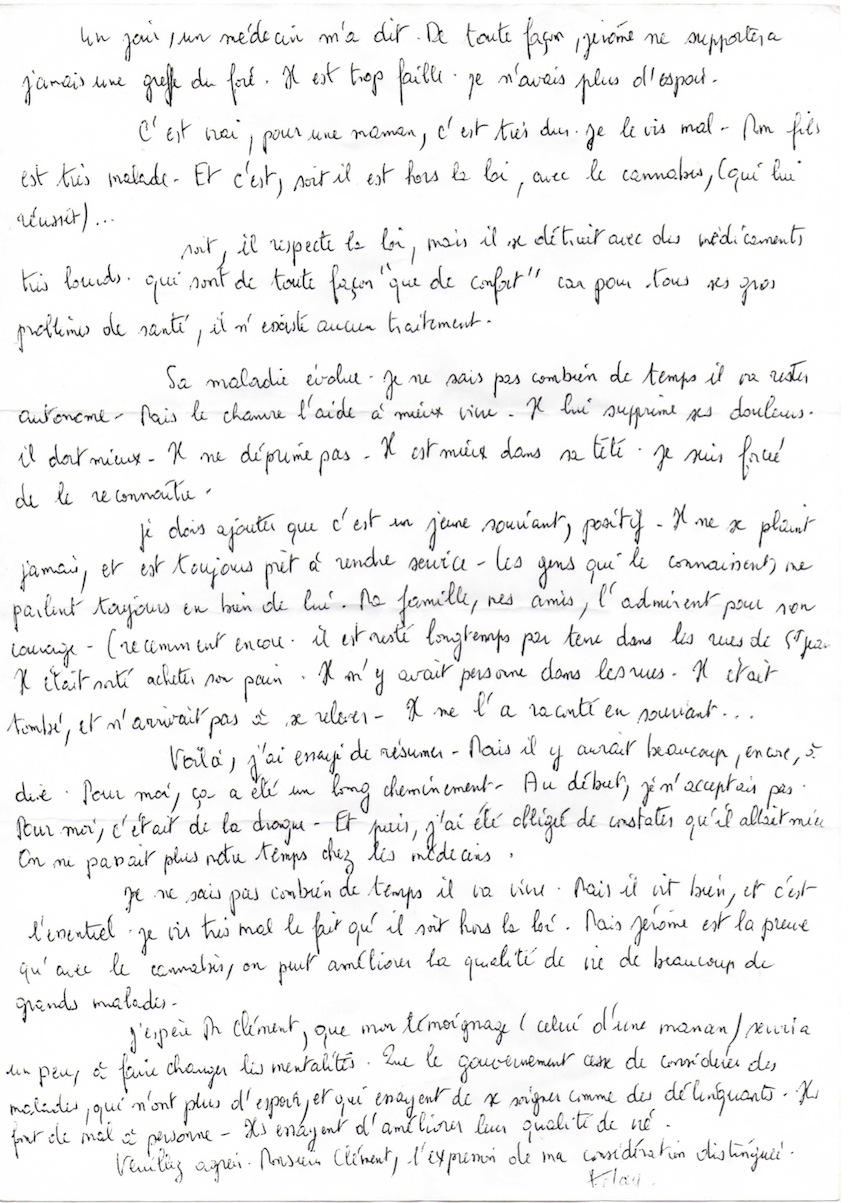 Un jour, un médecin m'a dit. De toute façon, jérôme ne supportera
jamais une greffe du foie. Il est trop faible. je n'avais plus d'espoir.
C'est vrai, pour une maman, c'est très dur. je le vis mal - Mon fils
est très malade - Et c'est, soit il est hors la loi, avec le cannabis, (qui lui
réussit)...
soit, il respecte la loi, mais il se détruit avec des médicaments
très lourds. qui sont de toute façon "que de confort" car pour tous ses gros
problèmes de santé, il n'existe aucun traitement.
Sa maladie évolue. Je ne sais pas combien de temps il va rester
autonome - Mais le chanvre l'aide à mieux vivre - Il lui supprime ses douleurs.
il dort mieux - Il ne déprime pas - Il est mieux dans sa tête. je suis forcée
de le reconnaître.
je dois ajouter que c'est un jeune souriant, positif - Il ne se plaint
jamais, et est toujours prêt à rendre service - les gens qui le connaissent, me
parlent toujours en bien de lui. Ma famille, mes amis, l'admirent pour son
courage - (recemment encore. il est resté longtemps par terre dans les rues de St Jean
Il était sorti acheter son pain. Il n'y avait personne dans les rues. Il était
tombé, et n'arrivait pas à se relever - Il me l'a raconté en souriant...
Voilà, j'ai essayé de résumer - Mais il y aurait beaucoup, encore, à
dire. Pour moi, ça a été un long cheminement - Au début, je n'acceptais pas.
Pour moi, c'était de la drogue - Et puis, j'ai été obligée de constater qu'il allait mieux
On ne passait plus notre temps chez les médecins.
Je ne sais pas combien de temps il va vivre. Mais il vit bien, et c'est
l'essentiel. je vis très mal le fait qu'il soit hors la loi. Mais jérôme est la preuve
qu'avec le cannabis, on peut améliorer la qualité de vie de beaucoup de
grands malades -
J'espère Mr Clément, que mon témoignage (celui d'une maman) servira
un peu, à faire changer les mentalités. Que le gouvernement cesse de considérer des
malades, qui n'ont plus d'espoir, et qui essayent de se soigner comme des délinquants. Ils
font de mal à personne - Ils essayent d'améliorer leur qualité de vie.
Veuillez agréer. Monsieur Clément, l'expression de ma considération distinguée.